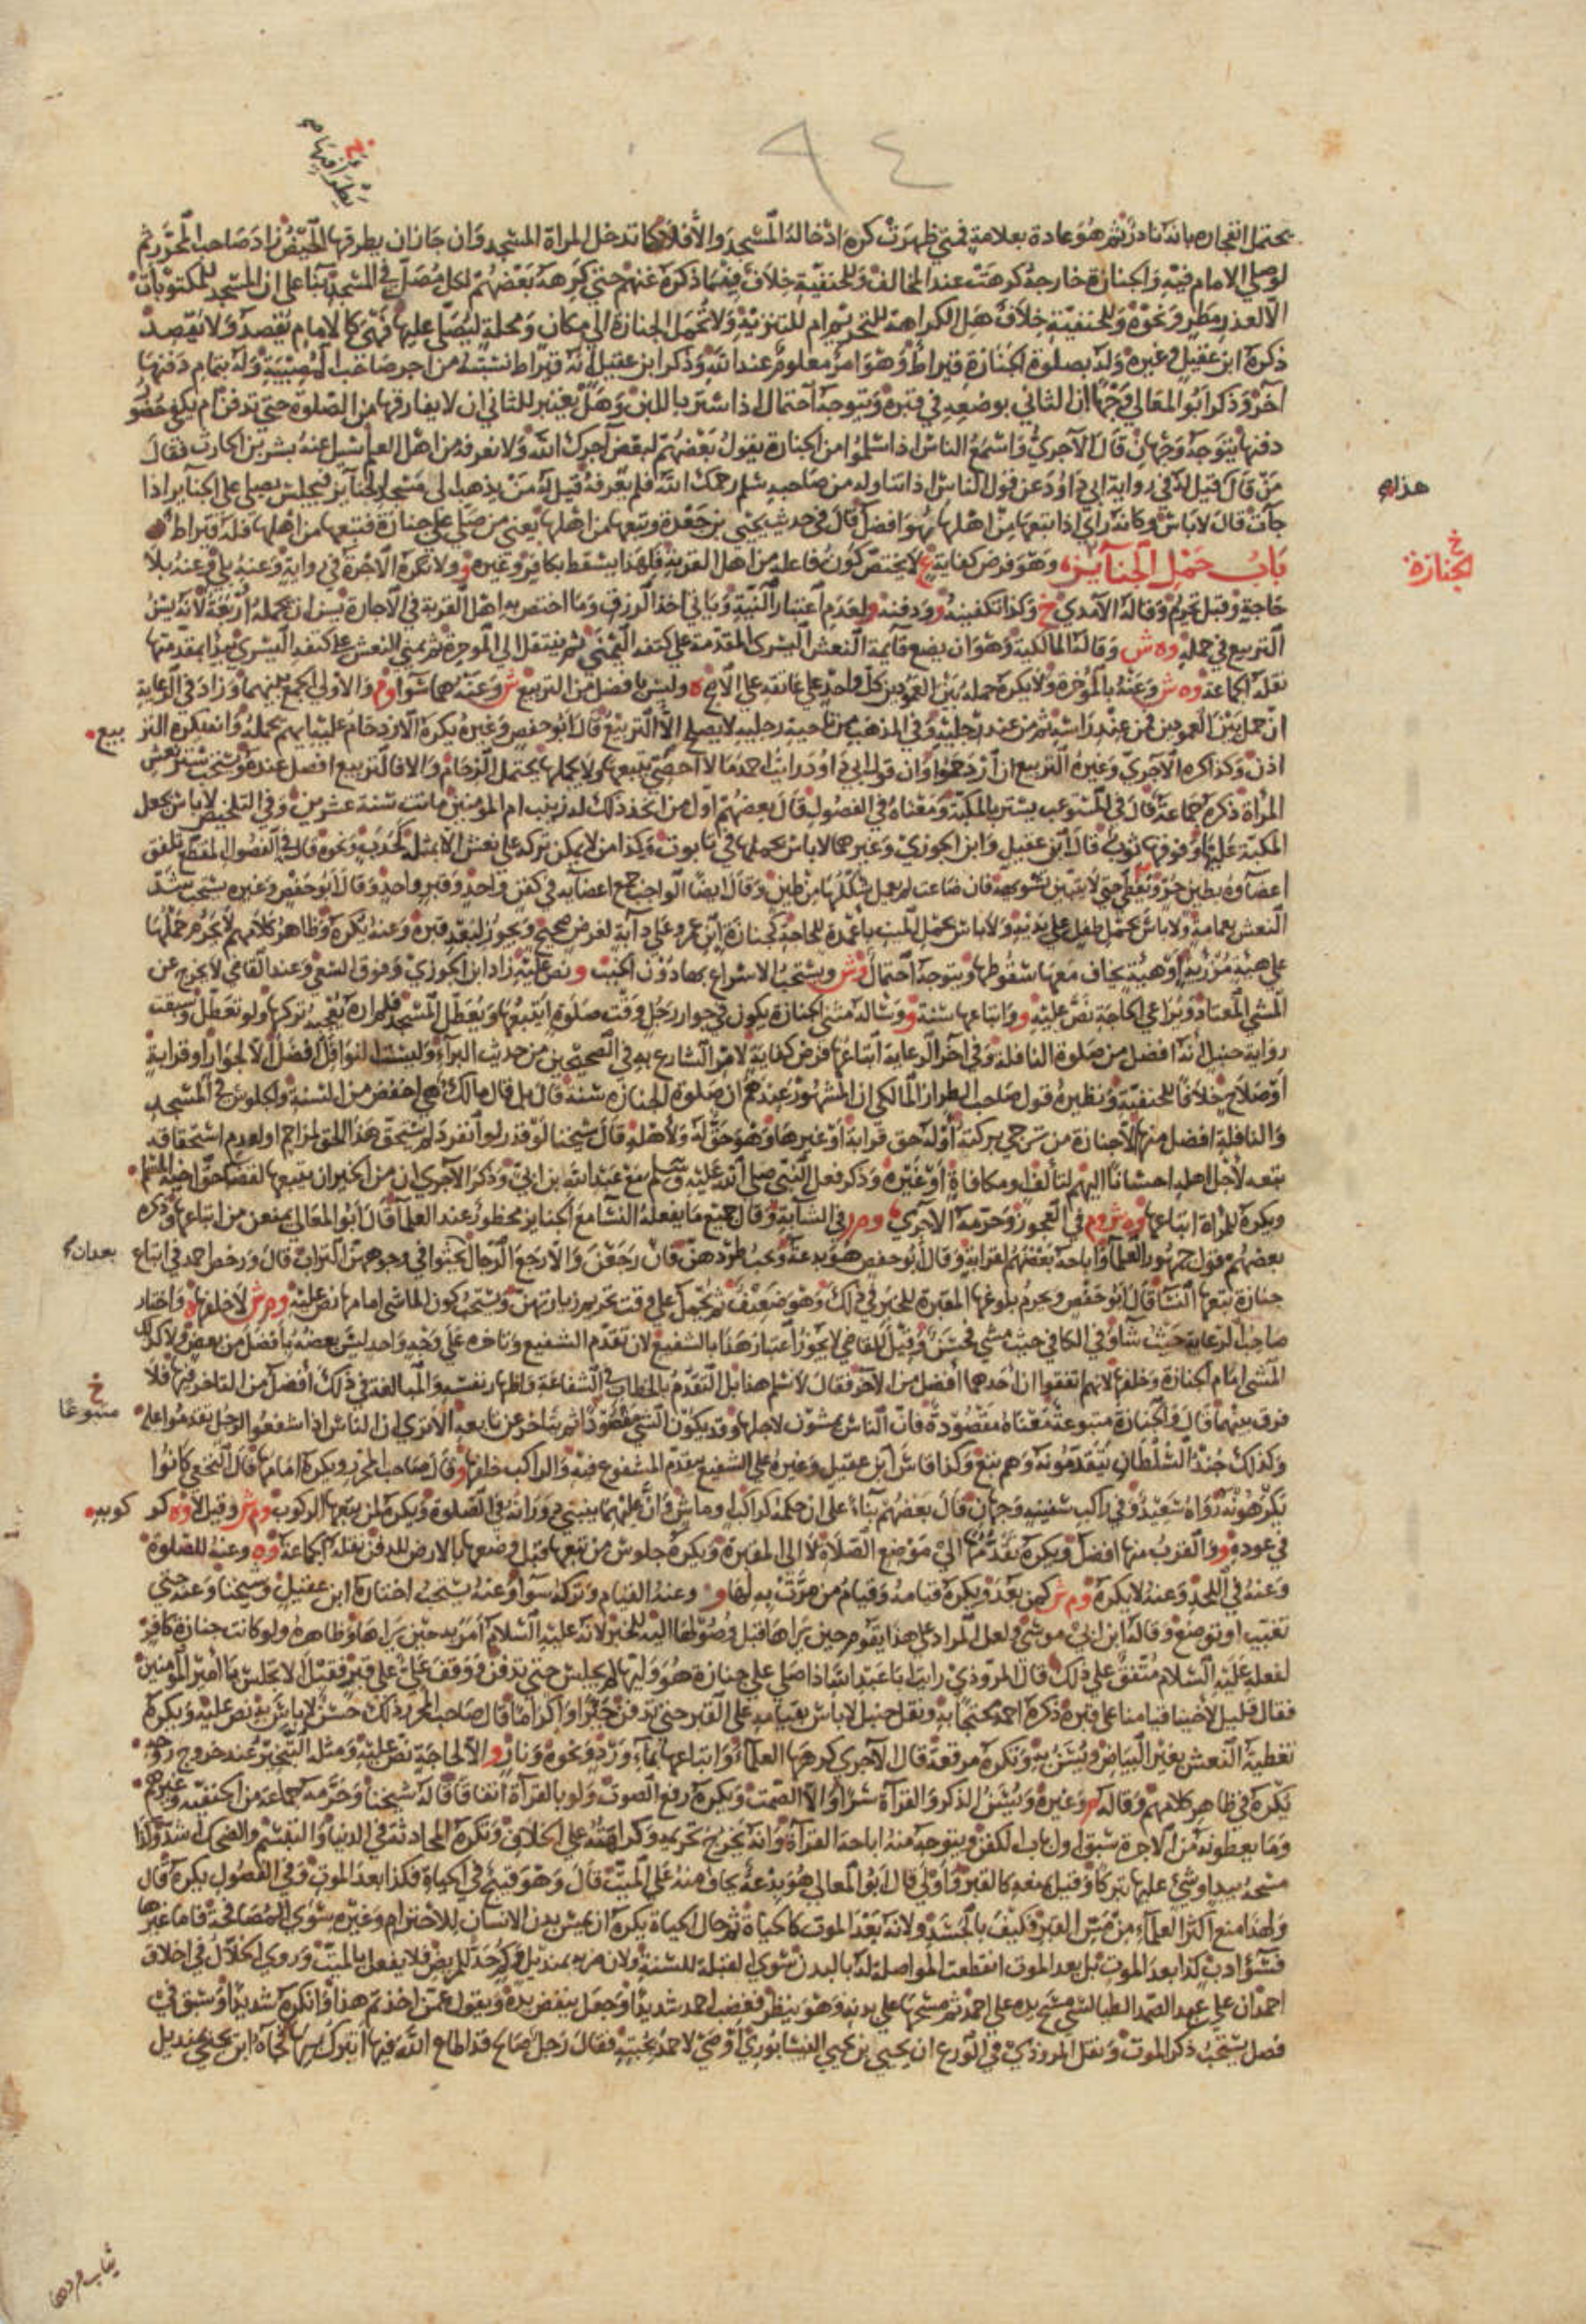 ٩٤
يحتمل انفجاره بانه نادر ثم هو عادة بعلامة فمتى ظهرت كره ادخاله المسجد والا فلا كما تدخل المراة المسجد وان جاز ان يطرقها الحيض زاد صاحب المحرر ثم
لو صلى الامام فيه والجنازة خارجه كرهت عند المخالف وللحنفية خلاف فيما ذكره عنهم حتى كرهه بعضهم لكل مصل في المسجد بناء على ان المسجد للمكتوبات
الا لعذر مطر ونحوه وللحنفية خلاف هل الكراهة للتحريم ام للتنزيه ولا تحمل الجنازة الى مكان ومحلة ليصلى عليها فهي كالامام يقصد ولا يقصد
ذكره ابن عقيل وغيره وله بصلوة الجنازة قيراط وهو امر معلوم عند الله وذكر ابن عقيل انه قيراط نسبته من اجر صاحب المصيبة وله بتمام دفنها
آخر وذكر ابو المعالي وجها ان الثاني بوضعه في قبره ويتوجه احتمال اذا ستر باللبن وهل يعتبر للثاني ان لا يفارقها من الصلوة حتى تدفن ام يكفي حضور
دفنها يتوجه وجهان قال الآجري واسمع الناس اذا سلموا من الجنازة يقول بعضهم لبعض آجرك الله ولا نعرفه من اهل العلم سيل عنه بشر بن الحارث فقال
من قال قيل له في رواية ابي داود عن قول الناس اذا تناوله من صاحبه سلم رحمك الله فلم يعرفه قيل له من يذهب الى مسجد الجنايز فيجلس يصلي على الجنايز اذا
جآت قال لا باس وكانه راى اذا تبعها من اهلها هو افضل قال في حديث يحيى بن جعدة وتبعها من اهلها يعني من صلى على جنازة فتبعها من اهلها فله قيراط
باب حمل الجنايز وهو فرض كفاية ع لا يختص كون فاعله من اهل القربة فلهذا يسقط بكافر وغيره و ولا تكره الاجرة في رواية وعنه بلى وعنه بلا
حاجة وقيل تحرم وقاله الآمدي خ وكذا تكفينه و ودفنه و لعدم اعتبار النية وياتي اخذ الرزق وما اختص به اهل القربة في الاجارة يسن ان يحمله اربعة لانه يسن
التربيع في حمله وه ش وقاله المالكية وهو ان يضع قآئمة النعش اليسرى المقدمة على كتفه اليمنى ثم ينتقل الى الموخرة ثم يمنى النعش على كتفه اليسرى يبدا بمقدمتها
نقله الجماعة وه ش وعنه بالموخرة ولا يكره حمله بين العمودين كل واحد على عاتقه على الاصح ه وليس بافضل من التربيع ش وعنه هما سوا وم والاولى الجمع بينهما وزاد في الرعاية
ان حمل بين العمودين فمن عند راسه ثم من عند رجليه وفي المذهب من ناحية رجليه لا يصلح الا التربيع قال ابو حفص وغيره يكره الازدحام عليه ايهم يحمله وانه يكره التربيع
اذن وكذا كره الآجري وغيره التربيع ان ازدحموا وان قول ابي داود رايت احمد ما لا احصي يتبعها ولا يحملها يحتمل الزحام والا فالتربيع افضل عنده ويستحب ستر نعش
المراة ذكره جماعة قال في المستوعب يستر بالمكبة ومعناه في الفصول قال بعضهم اول من اتخذ ذلك له زينب ام المومنين ماتت سنة عشرين وفي التلخيص لا باس بجعل
المكبة عليها وفوقها ثوب قال ابن عقيل وابن الجوزي وغيرهما لا باس بحملها في تابوت وكذا من لا يمكن تركه على نعش الا بمثله كحدب ونحوه قال في الفصول المقطع تلفق
اعضاوه بطين حر ويغطى حتى لا يتبين تشويهه فان ضاعت لم يعمل شكلها من طين وقال ايضا الواجب جمع اعضآيه في كفن واحد وقبر واحد وقال ابو حفص وغيره يستحب شد
النعش بعمامة ولا باس بحمل طفل على يديه ولا باس بحمل الميت باعمدة للحاجة كجنازة ابن عمر وعلى دآبة لغرض صحيح ويجوز لبعد قبره وعنه يكره وظاهر كلامهم لا يحرم حملها
على هيئة مزرية او هيئة يخاف معها سقوطها ويتوجه احتمال وش ويستحب الاسراع بها دون الخبب و نص عليه زاد ابن الجوزي وفوق السعي وعند القاضي لا يخرج عن
المشي المعتاد ويراعى الحاجة نص عليه و واتباعها سنة و وساله مثنى الجنازة يكون في جوار رجل وقت صلوة ايتبعها ويعطل المسجد فلم اره يعجبه تركها ولو تعطل وسبقت
رواية حنبل انه افضل من صلوة النافلة وفي آخر الرعاية اتباعها فرض كفاية لامر الشارع به في الصحيحين من حديث البرآء وليست النوافل افضل الا لجوار او قرابة
او صلاح خلافا للحنفية ونظيره قول صاحب الطراز المالكي ان المشهور عندهم ان صلوة الجنازه سنة قال بل قال مالك هي اخفض من السنة والجلوس في المسجد
والنافلة افضل منها الا جنازة من ترجى بركته او له حق قرابة او غيرها وهو حق له ولاهله قال شيخنا لو قدر لو انفرد لم يستحق هذا الحق لمزاحم او لعدم استحقاقه
تبعه لاجل اهله احسانا اليهم لتالف او مكافاة او غيره وذكر فعل النبي صلى الله عليه وسلم مع عبد الله بن ابي وذكر الآجري ان من الخير ان يتبعها لقضآ حق اخيه المسلم
ويكره للمراة اتباعها وه ش وم في العجوز وحرمه الآجري و م ر في الشآبة وقال جميع ما يفعله النسآ مع الجنايز محظور عند العلمآ قال ابو المعالي يمنعن من اتباعها وذكره
بعضهم قول جمهور العلمآ واباحه بعضهم لقرابة وقال ابو حفص هو بدعة ويجب طردهن فان رجعن والا رجع الرجال حثوا في وجوههن التراب قال ورخص احمد في اتباع
جنازة تتبعها النسآ قال ابو حفص ويحرم بلوغها المقبرة للخبر في ذلك وهو ضعيف ثم يحمل على وقت تحريم زيارتهن ويستحب كون الماشي امامها نص عليه وم ش لا خلفها ه واختار
صاحب الرعاية حيث شآ وفي الكافي حيث مشى فحسن وقيل للقاضي لا يجوز اعتبار هذا بالشفيع لان تقدم الشفيع وتاخره على وجه واحد ليس بعضه بافضل من بعض ولا كذلك
المشي امام الجنازة وخلفها لانهم اتفقوا ان احدهما افضل من الآخر فقال لا نسلم هذا بل التقدم بالخطاب في الشفاعة واظهار نفسه والمبالغة في ذلك افضل من التاخر فيها فلا
فرق بينهما قال والجنازة متبوعة معناه مقصودة فان الناس يمشون لاجلها وقد يكون الشي مقصودا ثم يتاخر عن تابعه الا ترى ان الناس اذا شفعوا لرجل تقدموا عليه
وكذلك جند السلطان يتقدمونه وهم تبع وكذا قاس ابن عقيل وغيره على الشفيع يتقدم المشفوع فيه والراكب خلفها و قال صاحب المحرر ويكره امامها قال النخعي كانوا
يكرهونه رواه سعيد وفي راكب سفينة وجهان قال بعضهم بناء على ان حكمه كراكب او ماش وان عليهما ينبني دورانه في الصلوة ويكره لمن تبعها الركوب وم ش وقيل لا وه كركوبه
في عوده و والقرب منها افضل ويكره تقدمها الى موضع الصلاة لا الى المقبرة ويكره جلوس من تبعها قبل وضعها بالارض للدفن نقله الجماعة وه وعنه للصلوة
وعنه في اللحد وعنه لا يكره وم ش كمن بعد ويكره قيامه وقيام من مرت به لها و وعنه القيام وتركه سوآ وعنه يستحب اختاره ابن عقيل وشيخنا وعنه حتى
تغيب او توضع وقاله ابن ابي موسى ولعل المراد على هذا يقوم حين يراها قبل وصولها اليه للخبر لانه عليه السلام امر به حين يراها وظاهره ولو كانت جنازة كافر
لفعله عليه السلام متفق على ذلك قال المروذي رايت ابا عبد الله اذا صلى على جنازة هو وليها لم يجلس حتى تدفن ووقف علي على قبر فقيل الا تجلس يا امير المومنين
فقال قليل لاخينا قيامنا على قبره ذكره احمد محتجا به ونقل حنبل لا باس بقيامه على القبر حتى تدفن جبرا واكراما قال صاحب المحرر ذلك حسن لا باس به نص عليه ويكره
تغطية النعش بغير البياض ويسن به وتكره مرقعة قال الآجري كرهها العلمآء واتباعها بمآء ورد ونحوه ونار و الا لحاجة نص عليه ومثله التبخير عند خروج روحه
يكره في ظاهر كلامهم وقاله م وغيره ويسن الذكر والقرآة سرا والا الصمت ويكره رفع الصوت ولو بالقرآة اتفاقا قاله شيخنا وحرمه جماعة من الحنفية وغيرهم
وما يعطونه من الاجرة سبق اول باب الكفن ويتوجه منه اباحة القرآة وانه يخرج تحريمه وكراهته على الخلاف وتكره المحادثة في الدنيا والتبسم والضحك اشد وكذا
مسحه بيده او شي عليها تبركا وقيل يمنعه كالقبر واولى قال ابو المعالي هو بدعة يخاف منه على الميت قال وهو قبيح في الحياة فكذا بعد الموت وفي الفصول يكره قال
ولهذا منع اكثر العلمآء من مس القبر فكيف بالجسد ولانه بعد الموت كالحياة ثم حال الحياة يكره ان يمس بدن الانسان للاحترام وغيره سوى المصافحة فاما غيرها
فسوء ادب كذا بعد الموت بل بعد الموت انقطعت المواصلة له بالبدن سوى القبلة للسنة ولان مره بمنديل وكم حد للمريض فلا يفعل بالميت وروى الخلال في اخلاق
احمد ان علي عبد الصمد الطيالسي مسح يده على احمد ثم مسحها على بدنه وهو ينظر فغضب احمد شديدا وجعل ينفض يده ويقول عمن اخذتم هذا وانكره شديدا وسبق في
فصل يستحب ذكر الموت ونقل المروذي في الورع ان يحيى بن يحيى النيسابوري اوصى لاحمد بجبته فقال رجل صالح قد اطاع الله فيها اتبرك بها فجآءه ابن يحيى بمنديل
خ
الجنازة
خ
متبوعا